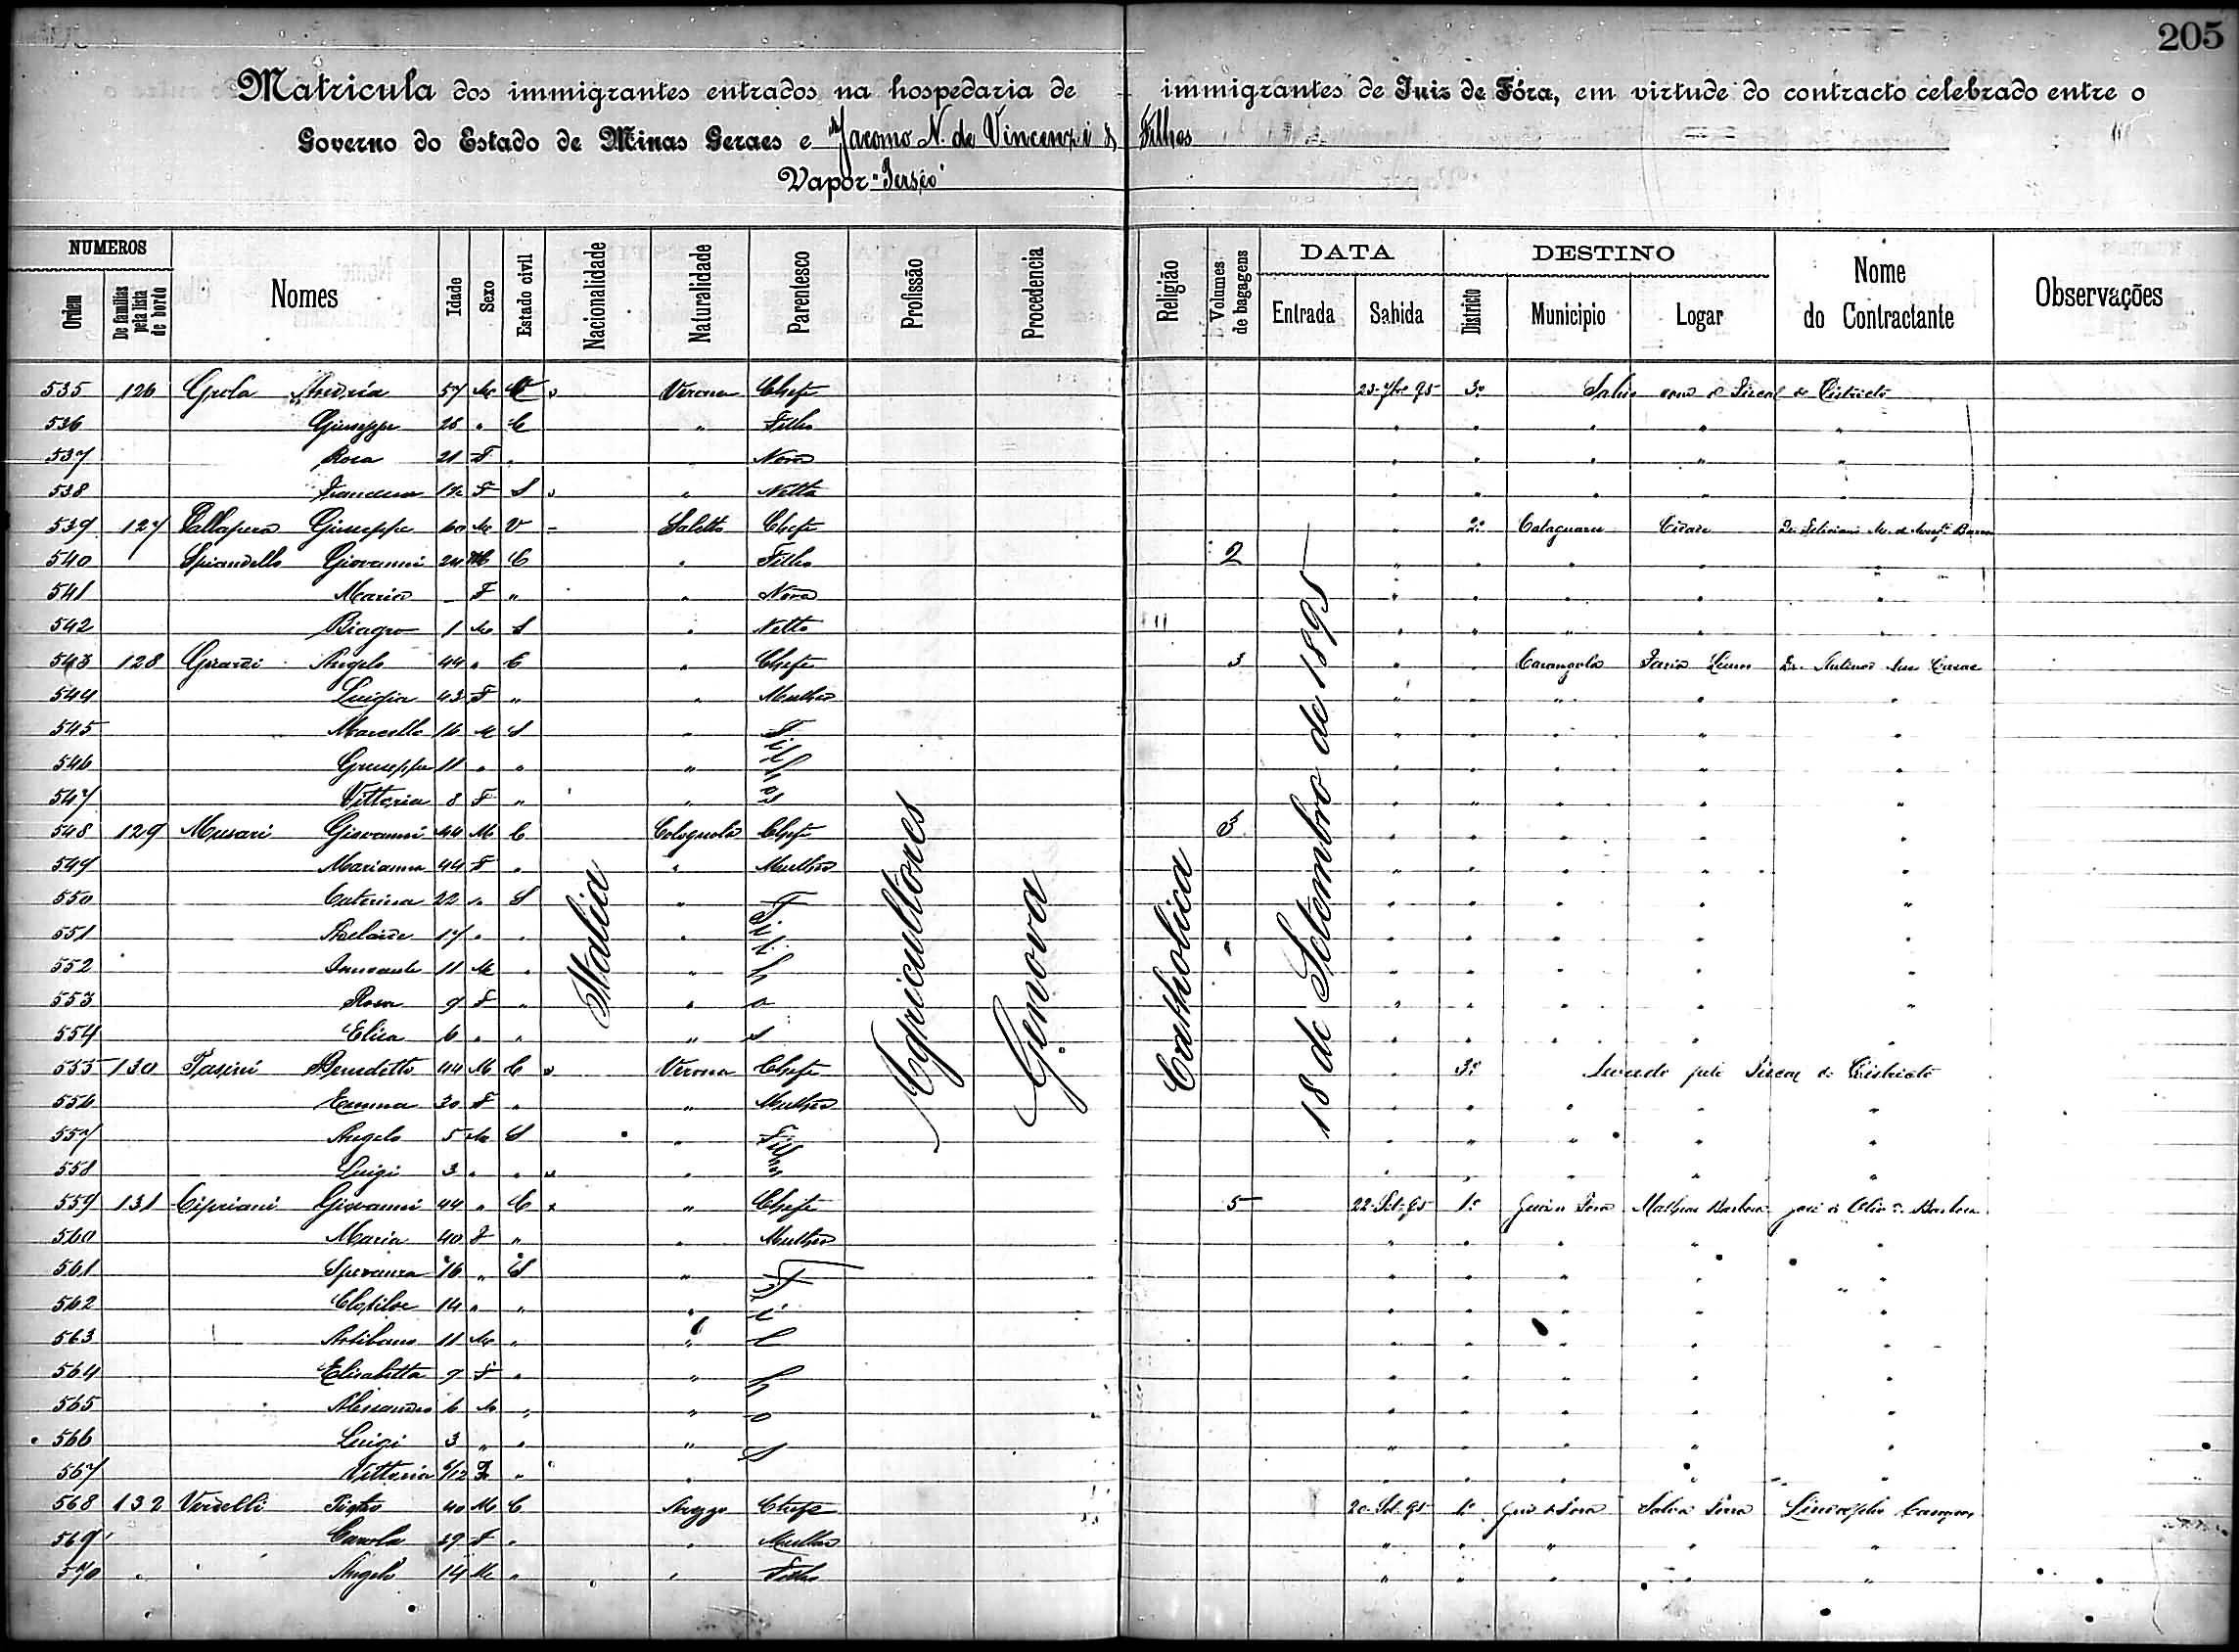 205
Matricula dos immigrantes entrados na hospedaria de immigrantes de Juiz de Fóra, em virtude do contracto celebrado entre o
Governo do Estado de Minas Geraes e Jacomo N. de Vincenzi & Filhos
Vapor "Perséo"
NUMEROS DATA DESTINO
Ordem De familias pela lista de bordo Nomes Idade Sexo Estado civil Nacionalidade Naturalidade Parentesco Profissão Procedencia Religião Volumes de bagagens Entrada Sahida Districto Municipio Logar Nome do Contractante Observações
Italia Agricultores Genova Catholica 18 de Setembro de 1895
535 126 Grola Andréa 57 M Verona Chefe 3º
536 Giuseppe 25 " C " Filho " " " " "
537 Rosa 21 F " Nora " " " " "
538 Francesca F S " Netta " " " " "
539 127 Giuseppe 60 M V Saletto Chefe " 2º Cataguazes Cidade
540 Spiandello Giovanni 24 M C " Filho 2 " " " " "
541 Maria F " " Nora " " " " "
542 Biagio 1 M S " Netto " " " " "
543 128 Girardi Angelo 44 " C " Chefe 3 " " Carangola Faria Lemos
544 Luigia 43 F " " Mulher " " " " "
545 Marcello 16 M S " Filhos " " " " "
546 Giuseppe 11 " " " " " " " "
547 Vittoria 8 F " " " " " " "
548 129 Musari Giovanni 44 M C Colognola Chefe 3 " " " " "
549 Marianna 44 F " " Mulher " " " " "
550 Caterina 22 " S " Filhos " " " " "
551 Adelaide 17 " " " " " " " "
552 11 M " " " " " " "
553 Rosa 9 F " " " " " " "
554 Elisa 6 " " " " " " " "
555 130 Pasini Benedetto 44 M C Verona Chefe " 3º
556 Emma 30 F " " Mulher " " " " "
557 Angelo 5 M S " Filhos " " " " "
558 Luigi 3 " " " " " " " "
559 131 Cipriani Giovanni 44 " C " Chefe 5 22-Set-95 1º Juiz de Fora Mathias Barbosa
560 Maria 40 F " " Mulher " " " " "
561 Speranza 16 " S " Filhos " " " " "
562 Clotilde 14 " " " " " " " "
563 11 M " " " " " " "
564 Elisabetta 9 F " " " " " " "
565 Alessandro 6 M " " " " " " "
566 Luigi 3 " " " " " " " "
567 Vittoria F " " " " " " "
568 132 Pietro 40 M C Chefe 20-Set-95 1º Juiz de Fora
569 39 F " " Mulher " " " " "
570 Angelo 14 M " " Filho " " " " "